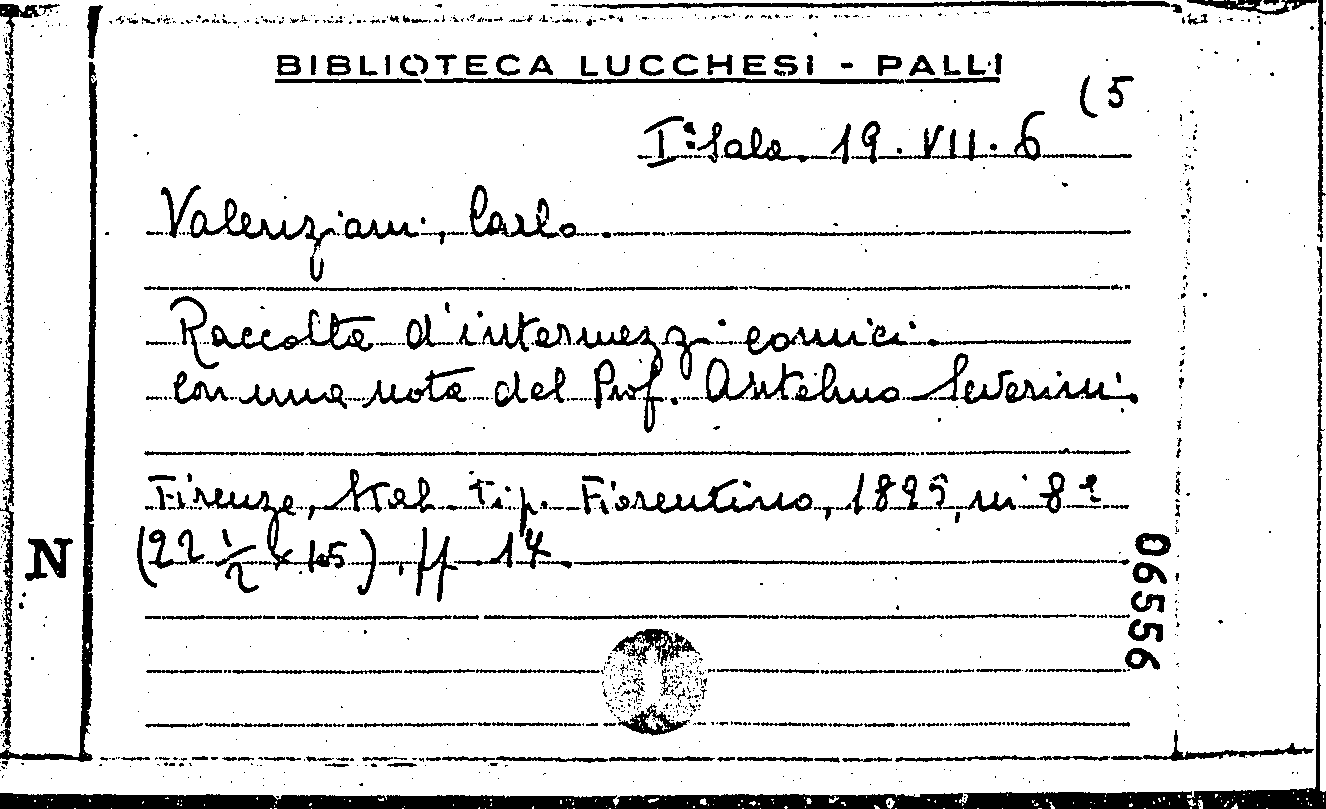 BIBLIOTECA LUCCHESI - PALLI
(5
Iª Sala. 19. VII. 6
Valenziani, Carlo.
Raccolta d'intermezzi comici.
Con una nota del Prof. Antelmo Severini.
Firenze, Stab. Tip. Fiorentino, 1895, in 8º
(22 1/2 x 15), ff. 14.
N
06556